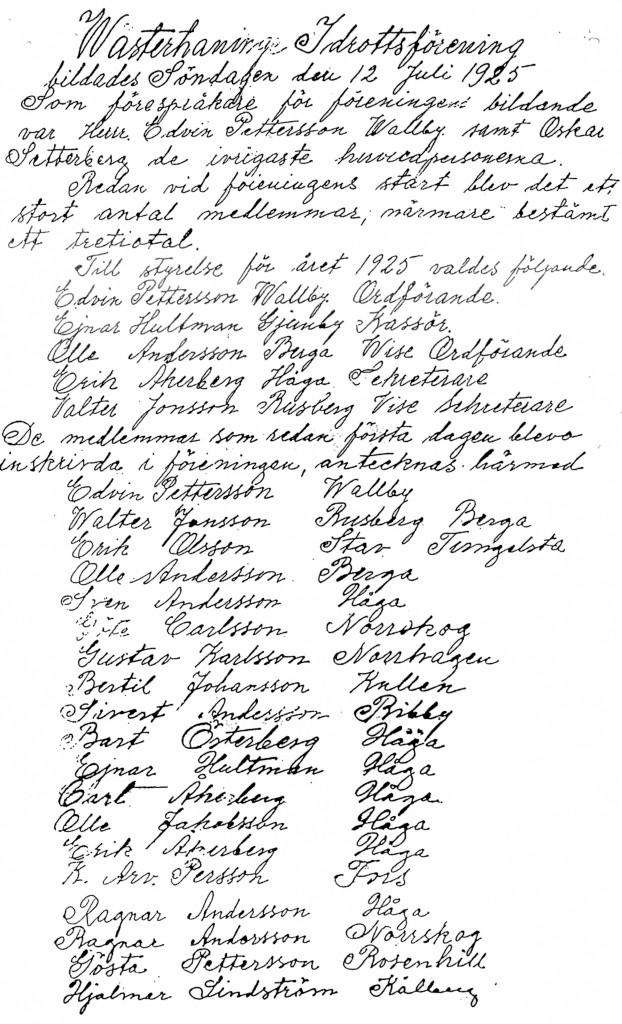 Wästerhaninge Idrottsförening
bildades Söndagen den 12 Juli 1925
Som förespråkare för föreningens bildande
var Herr. Edvin Pettersson Wallby samt Oskar
Setterberg de ivrigaste huvudpersonerna.
Redan vid föreningens start blev det ett
stort antal medlemmar, närmare bestämt
ett tretiotal.
Till styrelse för året 1925 valdes följande.
Edvin Pettersson Wallby Ordförande.
Ejnar Hultman Kassör.
Olle Andersson Berga Wise Ordförande
Erik Åkerberg Håga Sekreterare
Valter Jonsson Rusberg Vise Sekreterare
De medlemmar som redan första dagen blevo
inskrivda i föreningen, antecknas härmed
Edvin Pettersson Wallby
Walter Jonsson Rusberg Berga
Erik Olsson Stav Tungelsta
Olle Andersson Berga
Sven Andersson Håga
Carlsson Norrskog
Gustav Karlsson Norrhagen
Bertil Johansson Kullen
Sivert Andersson Ribby
Bart Österberg Håga
Ejnar Hultman Håga
Carl Åkerberg Håga
Olle Jakobsson Håga
Erik Åkerberg Håga
K. Arv. Persson Fors
Ragnar Andersson Håga
Ragnar Andersson Norrskog
Gösta Pettersson Rosenhill
Hjalmar Lindström Kålberg